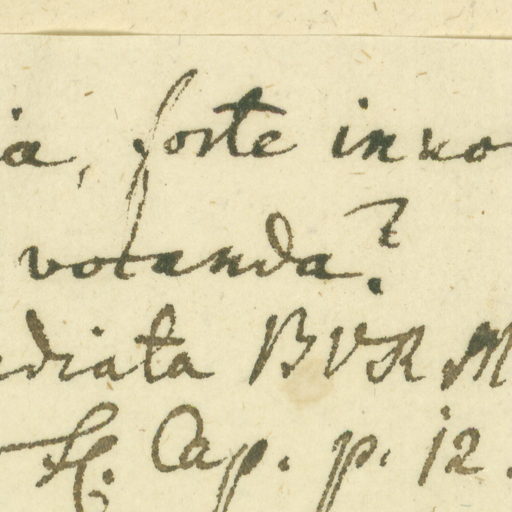 ia, forte inuo
vocanda?
diata BVRM
Fl. Cap. p. 12.